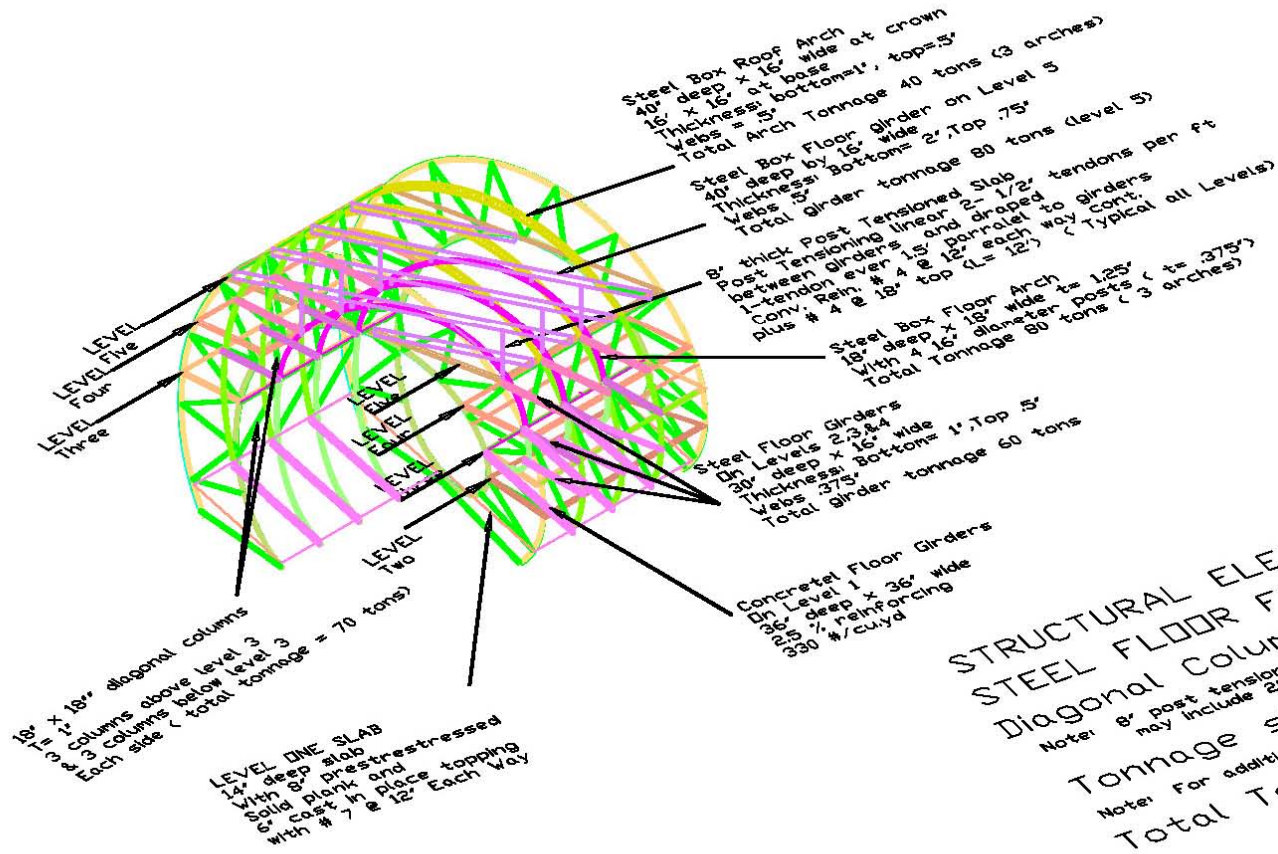 Steel Box Roof Arch
40" deep x 16" wide at crown
16" x 16" at base
Thickness: bottom=1", top=.5"
Webs = .5"
Total Arch Tonnage 40 tons (3 arches)
Steel Box Floor girder on Level 5
40" deep by 16" wide
Thickness: Bottom= 2",Top .75"
Webs .5"
Total girder tonnage 80 tons (level 5)
8" thick Post Tensioned Slab
Post Tensioning linear 2- 1/2" tendons per ft
between girders and draped
1-tendon ever 1.5' parralel to girders
Conv. Rein. # 4 @ 12" each way cont.
plus # 4 @ 18" top (L= 12') ( Typical all Levels)
Steel Box Floor Arch
18" deep x 18" wide t= 1.25"
With 4 16" diameter posts ( t= .375")
Total Tonnage 80 tons ( 3 arches)
Steel Floor Girders
On Levels 2,3,&4
30" deep x 16" wide
Thickness: Bottom= 1",Top .5"
Webs .375"
Total girder tonnage 60 tons
Concretel Floor Girders
On Level 1
36" deep x 36" wide
2.5 % reinforcing
330 #/cu.yd
LEVEL
Five
LEVEL
Four
LEVEL
Three
LEVEL
Five
LEVEL
Four
LEVEL
LEVEL
Two
18" x 18"" diagonal columns
T= 1"
3 columns above level 3
& 3 columns below level 3
Each side ( total tonnage = 70 tons)
LEVEL ONE SLAB
14" deep slab
With 8" prestrestressed
Solid plank and
6" cast in place topping
with # 7 @ 12" Each Way
STRUCTURAL ELE
STEEL FLOOR F
Diagonal Colum
Note: 8" post tension
may include 2
Tonnage S
Note: For additi
Total T